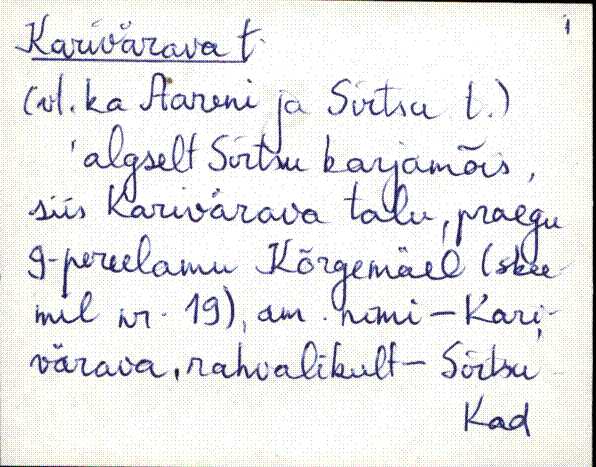 1
Karivärava t.
(vl. ka Aareni ja Sirtsu t.)
'algselt Sirtsu karjamõis,
siis Karivärava talu, praegu
9-pereelamu Kõrgemäel (skee-
mil nr. 19), am. nimi – Kari-
värava, rahvalikult – Sirtsu'
Kad